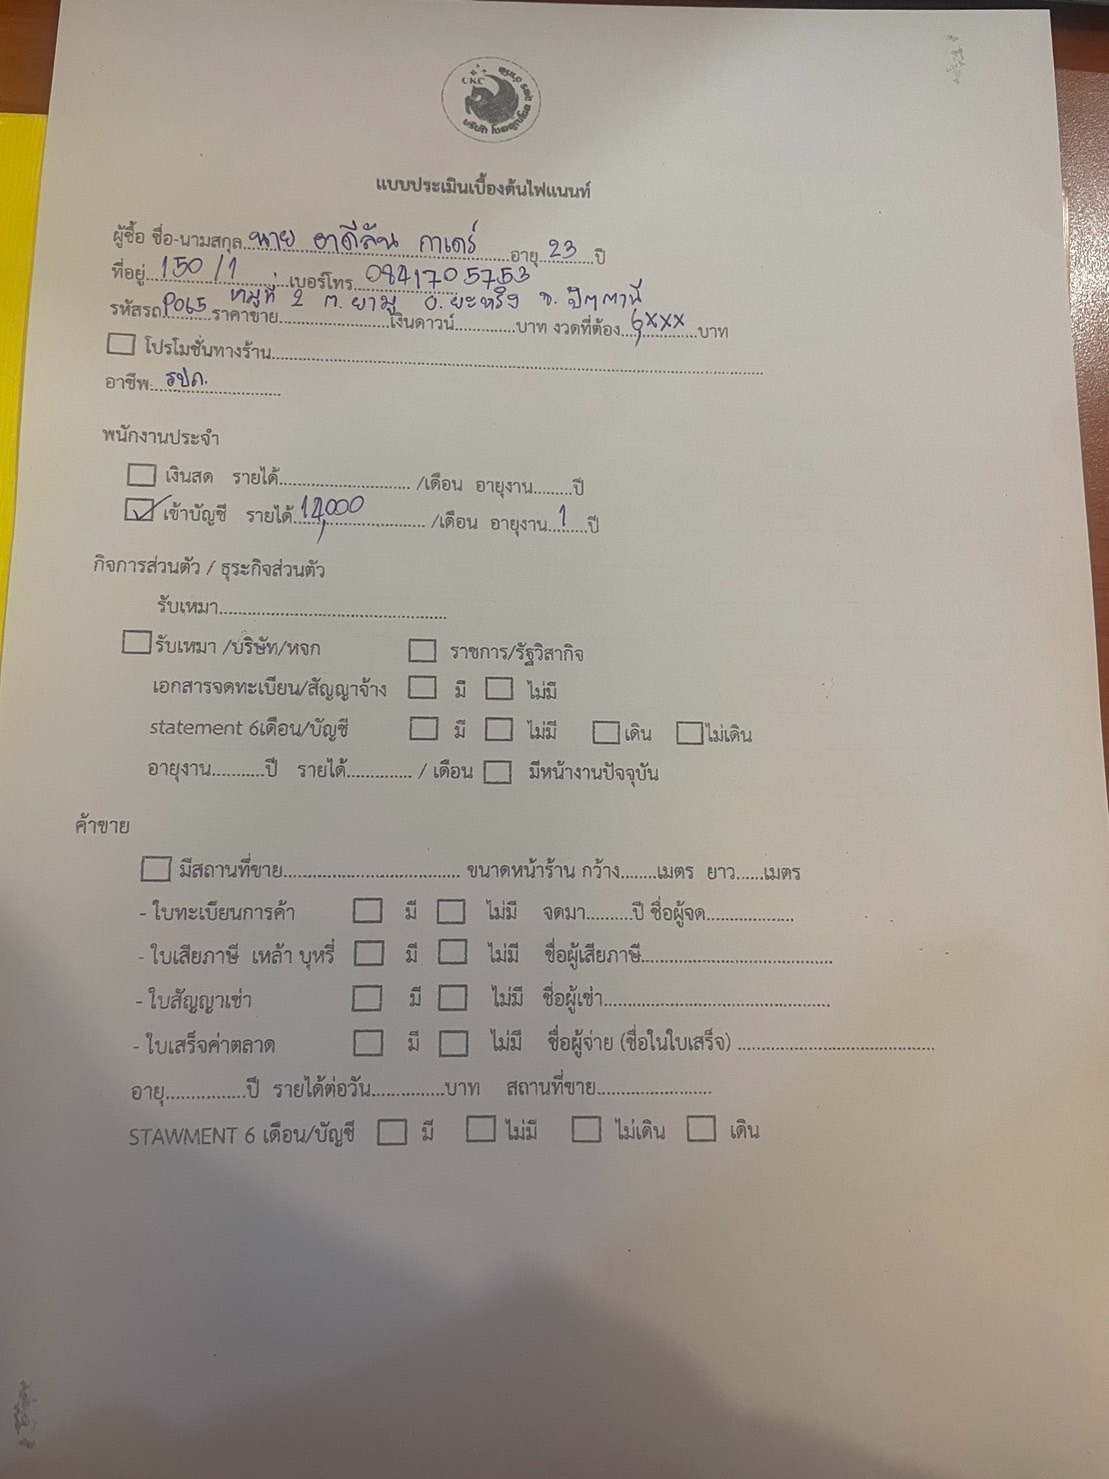 CKC
แบบประเมินเบื้องต้นไฟแนนท์
ผู้ซื้อ ชื่อ-นามสกุล..นาย ฮาดีลัน กาเดร์ ....อายุ..23...ปี
ที่อยู่..150/1......เบอร์โทร..0841705753
หมู่ที่ 2 ต.ยามู อ.ยะหริ่ง จ.ปัตตานี
รหัสรถ P065 ราคาขาย..............เงินดาวน์.............บาท งวดที่ต้อง..6,xxx...บาท
โปรโมชั่นทางร้าน..............
อาชีพ..รปภ...............
พนักงานประจำ
เงินสด รายได้.............................. /เดือน อายุงาน.........ปี
เข้าบัญชี รายได้ 14,000 .............. /เดือน อายุงาน...1....ปี
กิจการส่วนตัว / ธุระกิจส่วนตัว
รับเหมา..............................
รับเหมา /บริษัท/หจก ราชการ/รัฐวิสากิจ
เอกสารจดทะเบียน/สัญญาจ้าง มี ไม่มี
statement 6เดือน/บัญชี มี ไม่มี เดิน ไม่เดิน
อายุงาน...........ปี รายได้............. / เดือน มีหน้างานปัจจุบัน
ค้าขาย
มีสถานที่ขาย.................................. ขนาดหน้าร้าน กว้าง........เมตร ยาว......เมตร
- ใบทะเบียนการค้า มี ไม่มี จดมา..........ปี ชื่อผู้จด...................
- ใบเสียภาษี เหล้า บุหรี่ มี ไม่มี ชื่อผู้เสียภาษี..........................................
- ใบสัญญาเช่า มี ไม่มี ชื่อผู้เช่า..................................................
- ใบเสร็จค่าตลาด มี ไม่มี ชื่อผู้จ่าย (ชื่อในใบเสร็จ) ..........................................
อายุ.................ปี รายได้ต่อวัน...............บาท สถานที่ขาย.........................
STAWMENT 6 เดือน/บัญชี มี ไม่มี ไม่เดิน เดิน